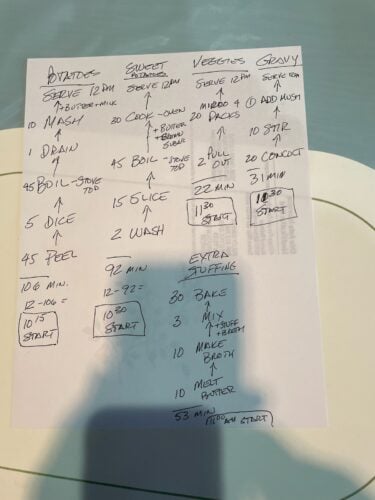 POTATOES
SERVE 12PM
+BUTTER+MILK
10 MASH
1 DRAIN
45 BOIL - STOVE TOP
5 DICE
45 PEEL
106 MIN.
12-106 =
10 15 START
SWEET POTATOES
SERVE 12PM
30 COOK - OVEN
+BUTTER
+BROWN SUGAR
45 BOIL - STOVE TOP
15 SLICE
2 WASH
92 MIN
12-92=
10 30 START
VEGGIES
SERVE 12PM
MICRO 4
20 PACKS
2 PULL OUT
22 MIN
11 30 START
GRAVY
SERVE 12PM
1 ADD MUSH
10 STIR
20 CONCOCT
31 MIN
11 30 START
EXTRA STUFFING
30 BAKE
3 MIX
+STUFF
+BREAD
10 MAKE BROTH
10 MELT BUTTER
53 MIN
11 00 AM START